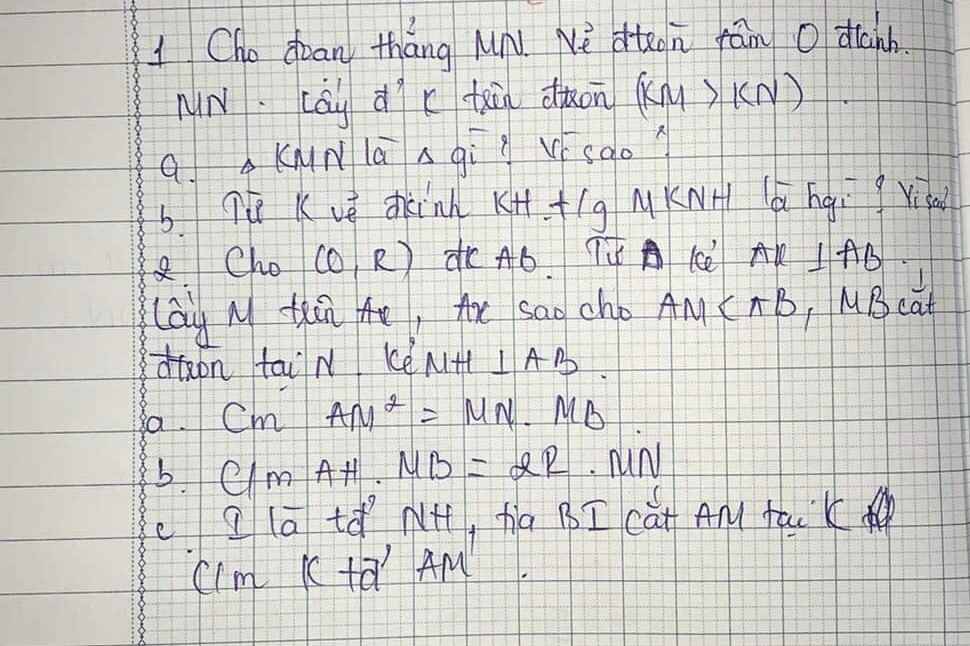 1 Cho đoan thẳng MN. Vẽ đtròn tâm O đkính.
MN. Lấy đ' K trên đtròn (KM > KN).
a. △ KMN là △ gì? Vì sao?
b. Từ K vẽ đkính KH. t/g MKNH là hgì? Vì sao
2. Cho (O, R) đk AB. Từ A kẻ Ax ⊥ AB.
Lấy M trên Ax, Ax sao cho AM < AB, MB cắt
đtròn tại N. Kẻ NH ⊥ AB.
a. Cm AM² = MN. MB.
b. C/m AH. MB = 2R. MN
c. I là tđ' NH, tia BI cắt AM tại K
C/m K tđ' AM.